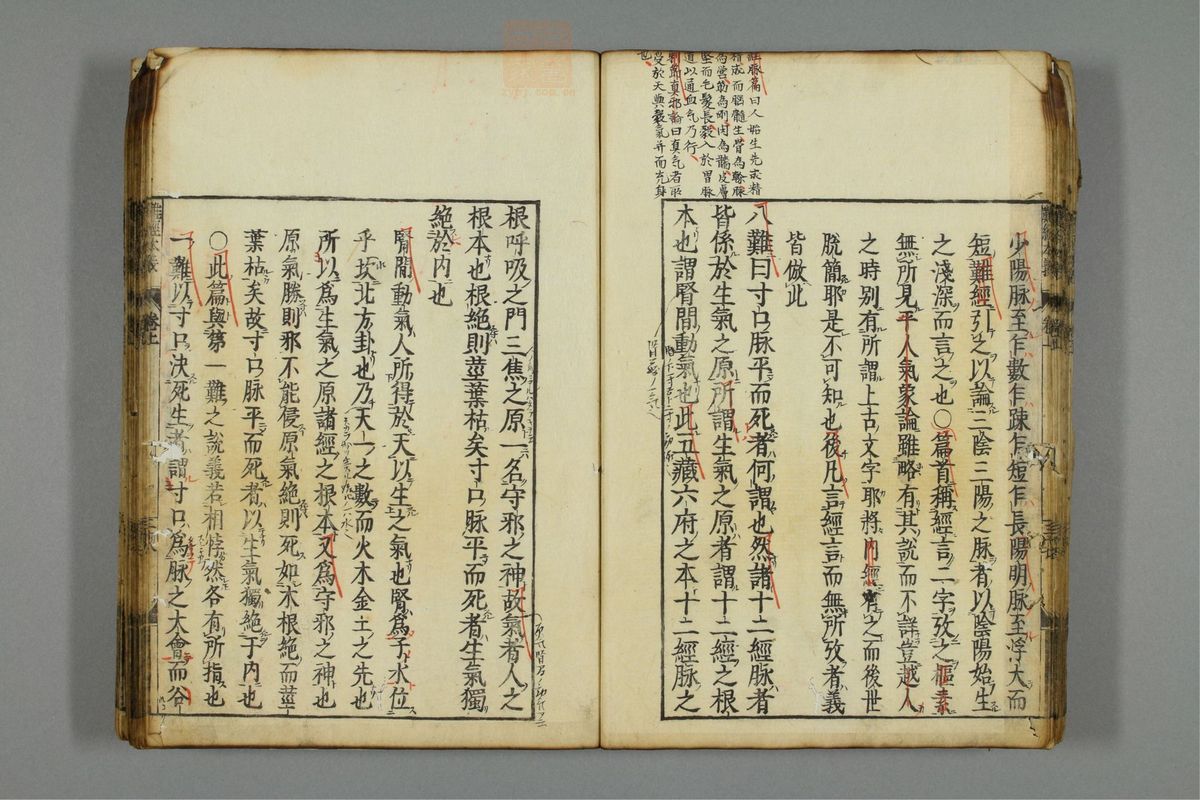 經脉篇曰人始生先成精
精成而腦髓生骨為幹脉
為營筋為剛肉為墻皮膚
堅而毛髮長穀入於胃脉
道以通血气乃行
刺節真邪論曰真气者所
受於天與穀氣并而充身
也
少陽脉至乍數乍踈乍短乍長陽明脉至浮大而
短難經引之以論三陰三陽之脉者以陰陽始生
之淺深而言之也〇篇首稱經言二字攷之樞素
無所見平人氣象論雖略有其說而不詳豈越人
之時别有所謂上古文字耶將内經有之而後世
脫簡耶是不可知也後凡言經言而無所攷者義
皆倣此
八難曰寸口脉平而死者何謂也然諸十二經脉者
皆係於生氣之原所謂生氣之原者謂十二經之根
本也謂腎間動氣也此五藏六府之本十二經脉之
根呼吸之門三焦之原一名守邪之神故氣者人之
根本也根絶則莖葉枯矣寸口脉平而死者生氣獨
絶於内也
腎間動氣人所得於天以生之氣也腎爲子水位
乎坎北方卦也乃天一之數而火木金土之先也
所以爲生氣之原諸經之根本又爲守邪之神也
原氣勝則邪不能侵原氣絶則死如木根絶而莖
葉枯矣故寸口脉平而死者以生氣獨絶于内也
〇此篇與第一難之說義若相悖然各有所指也
一難以寸口決死生者謂寸口爲脉之大會而谷
難經本義
卷上
zypj.com.cn